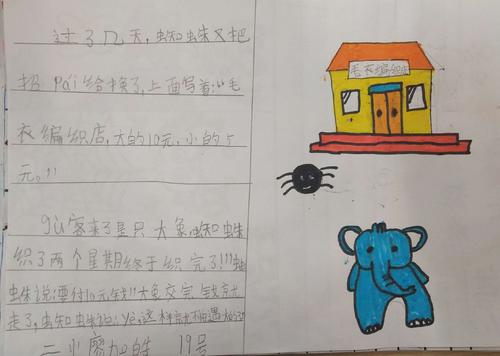 过了几天，蜘蛛又把
招pái给换了，上面写着：“毛
衣编织店，大的10元，小的5
元。”
gù客来了是只大象，蜘蛛
织了两个星期终于织完了！！！蜘
蛛说：要付10元钱！！大象交完钱就
走了，蜘蛛说：yé，这样就
二 19号
毛衣编织店